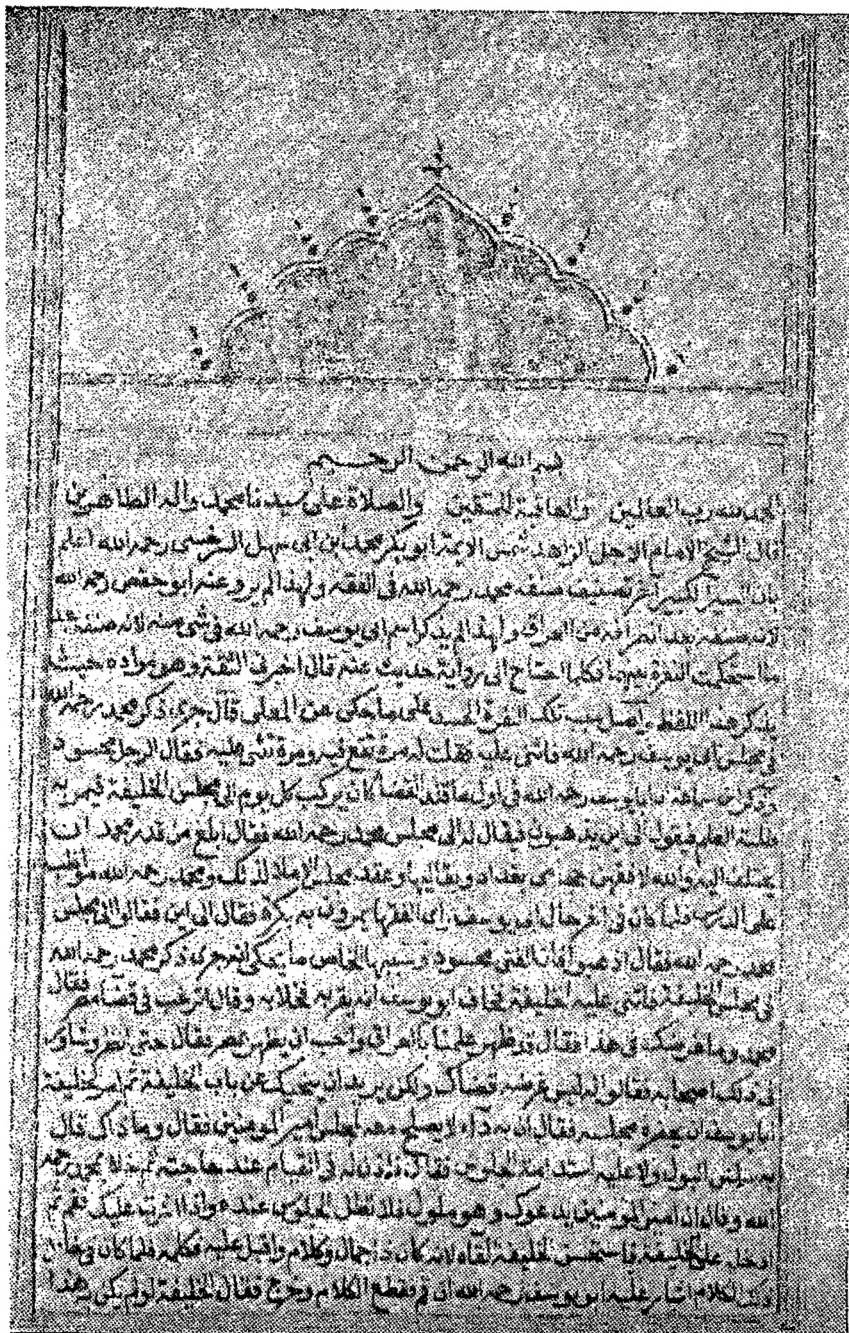 بسم الله الرحمن الرحيم
الحمد لله رب العالمين والعاقبة للمتقين والصلاة على سيدنا محمد واله الطاهرين
قال الشيخ الامام الاجل الزاهد شمس الايمة ابو بكر محمد بن ابى سهل السرخسى رحمه الله اعلم
بان السير الكبير آخر تصنيف صنفه محمد رحمه الله فى الفقه ولهذا لم يروه عنه ابو حفص رحمه الله
لانه صنفه بعد انصرافه من العراق ولهذا لم يذكر اسم ابى يوسف رحمه الله فى شئ منه لانه صنفه بعد
ما استحكمت النفرة بينهما فكلما احتاج الى رواية حديث عنه قال اخبرنى الثقة وهو مراده حيث
يذكر هذا اللفظ واصل سبب تلك النفرة الحسد على ما حكى عن المعلى قال جرى ذكر محمد رحمه الله
فى مجلس ابى يوسف رحمه الله فاثنى عليه فقلت له مرة تقع فيه ومرة تثنى عليه فقال الرجل محسود
وذكر ابن سماعة ان ابا يوسف رحمه الله فى اول ما قلد القضا كان يركب كل يوم الى مجلس الخليفة فيمر به
طلبة العلم فيقول الى اين يذهبون فيقال له الى مجلس محمد رحمه الله فقال ابلغ من قدر محمد ان
يختلف اليه والله لافقهن حجامى بغداد وبقاليها وعقد مجلس الاملا لذلك ومحمد رحمه الله مواظب
على الدرس فلما كان فى آخر حال ابى يوسف راى الفقها يمرون به بكرة فقال الى اين فقالوا الى مجلس
محمد رحمه الله فقال اذهبوا فان الفتى محسود وسببها الخاص ما يحكى انه جرى ذكر محمد رحمه الله
فى مجلس الخليفة فاثنى عليه الخليفة فخاف ابو يوسف انه يقربه فخلا به وقال اترغب فى قضا مصر فقال
محمد وما غرضك فى هذا فقال قد ظهر علمنا بالعراق واحب ان يظهر بمصر فقال حتى انظر وشاور
فى ذلك اصحابه فقالوا له ليس غرضه قضاك ولكن يريد ان ينحيك عن باب الخليفة ثم امر الخليفة
ابا يوسف ان يحضره مجلسه فقال ان به داء لا يصلح معه لمجلس امير المومنين فقال وما ذاك قال
به سلس البول ولا عليه استدامة الجلوس فقال فاذن له فى القيام عند حاجته ثم خلا بمحمد رحمه
الله وقال ان امير المومنين يدعوك وهو ملول فلا تطل الجلوس عنده واذا اشرت عليك فقم ثم
ادخله على الخليفة فاستحسن الخليفة لقاه لانه كان ذا جمال وكلام واقبل عليه فكلمه فلما كان فى خلال
ذلك الكلام اشار عليه ابو يوسف رحمه الله ان قم فقطع الكلام وخرج فقال الخليفة لو لم يكن به هذا